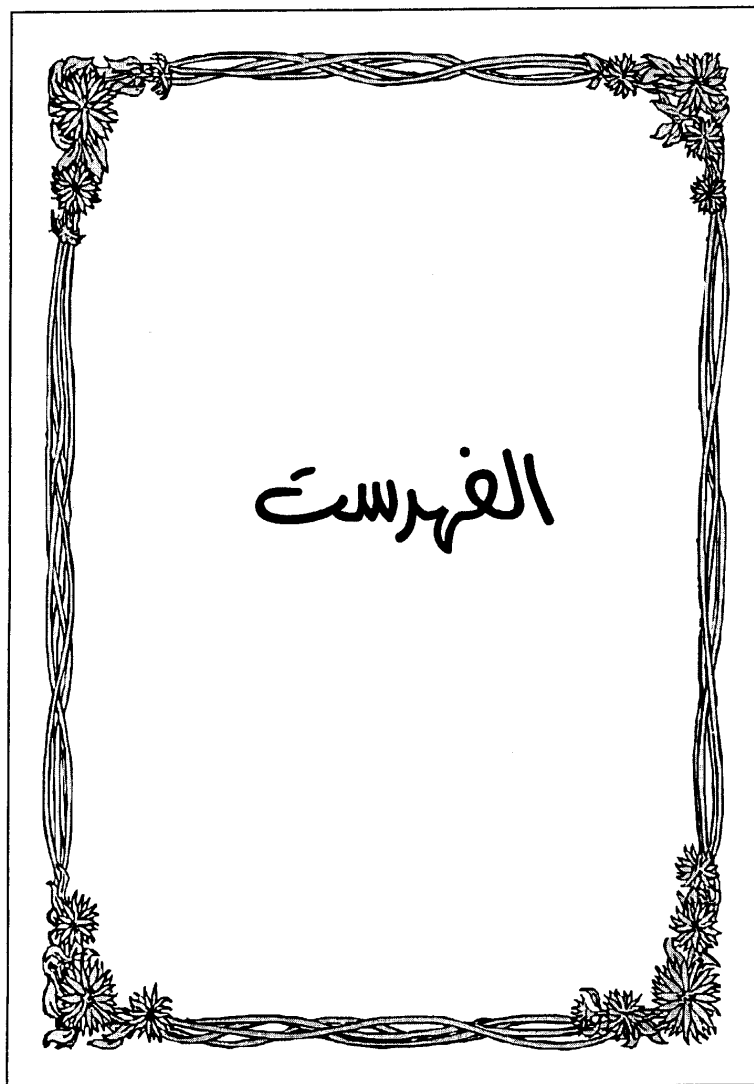 الفهرست